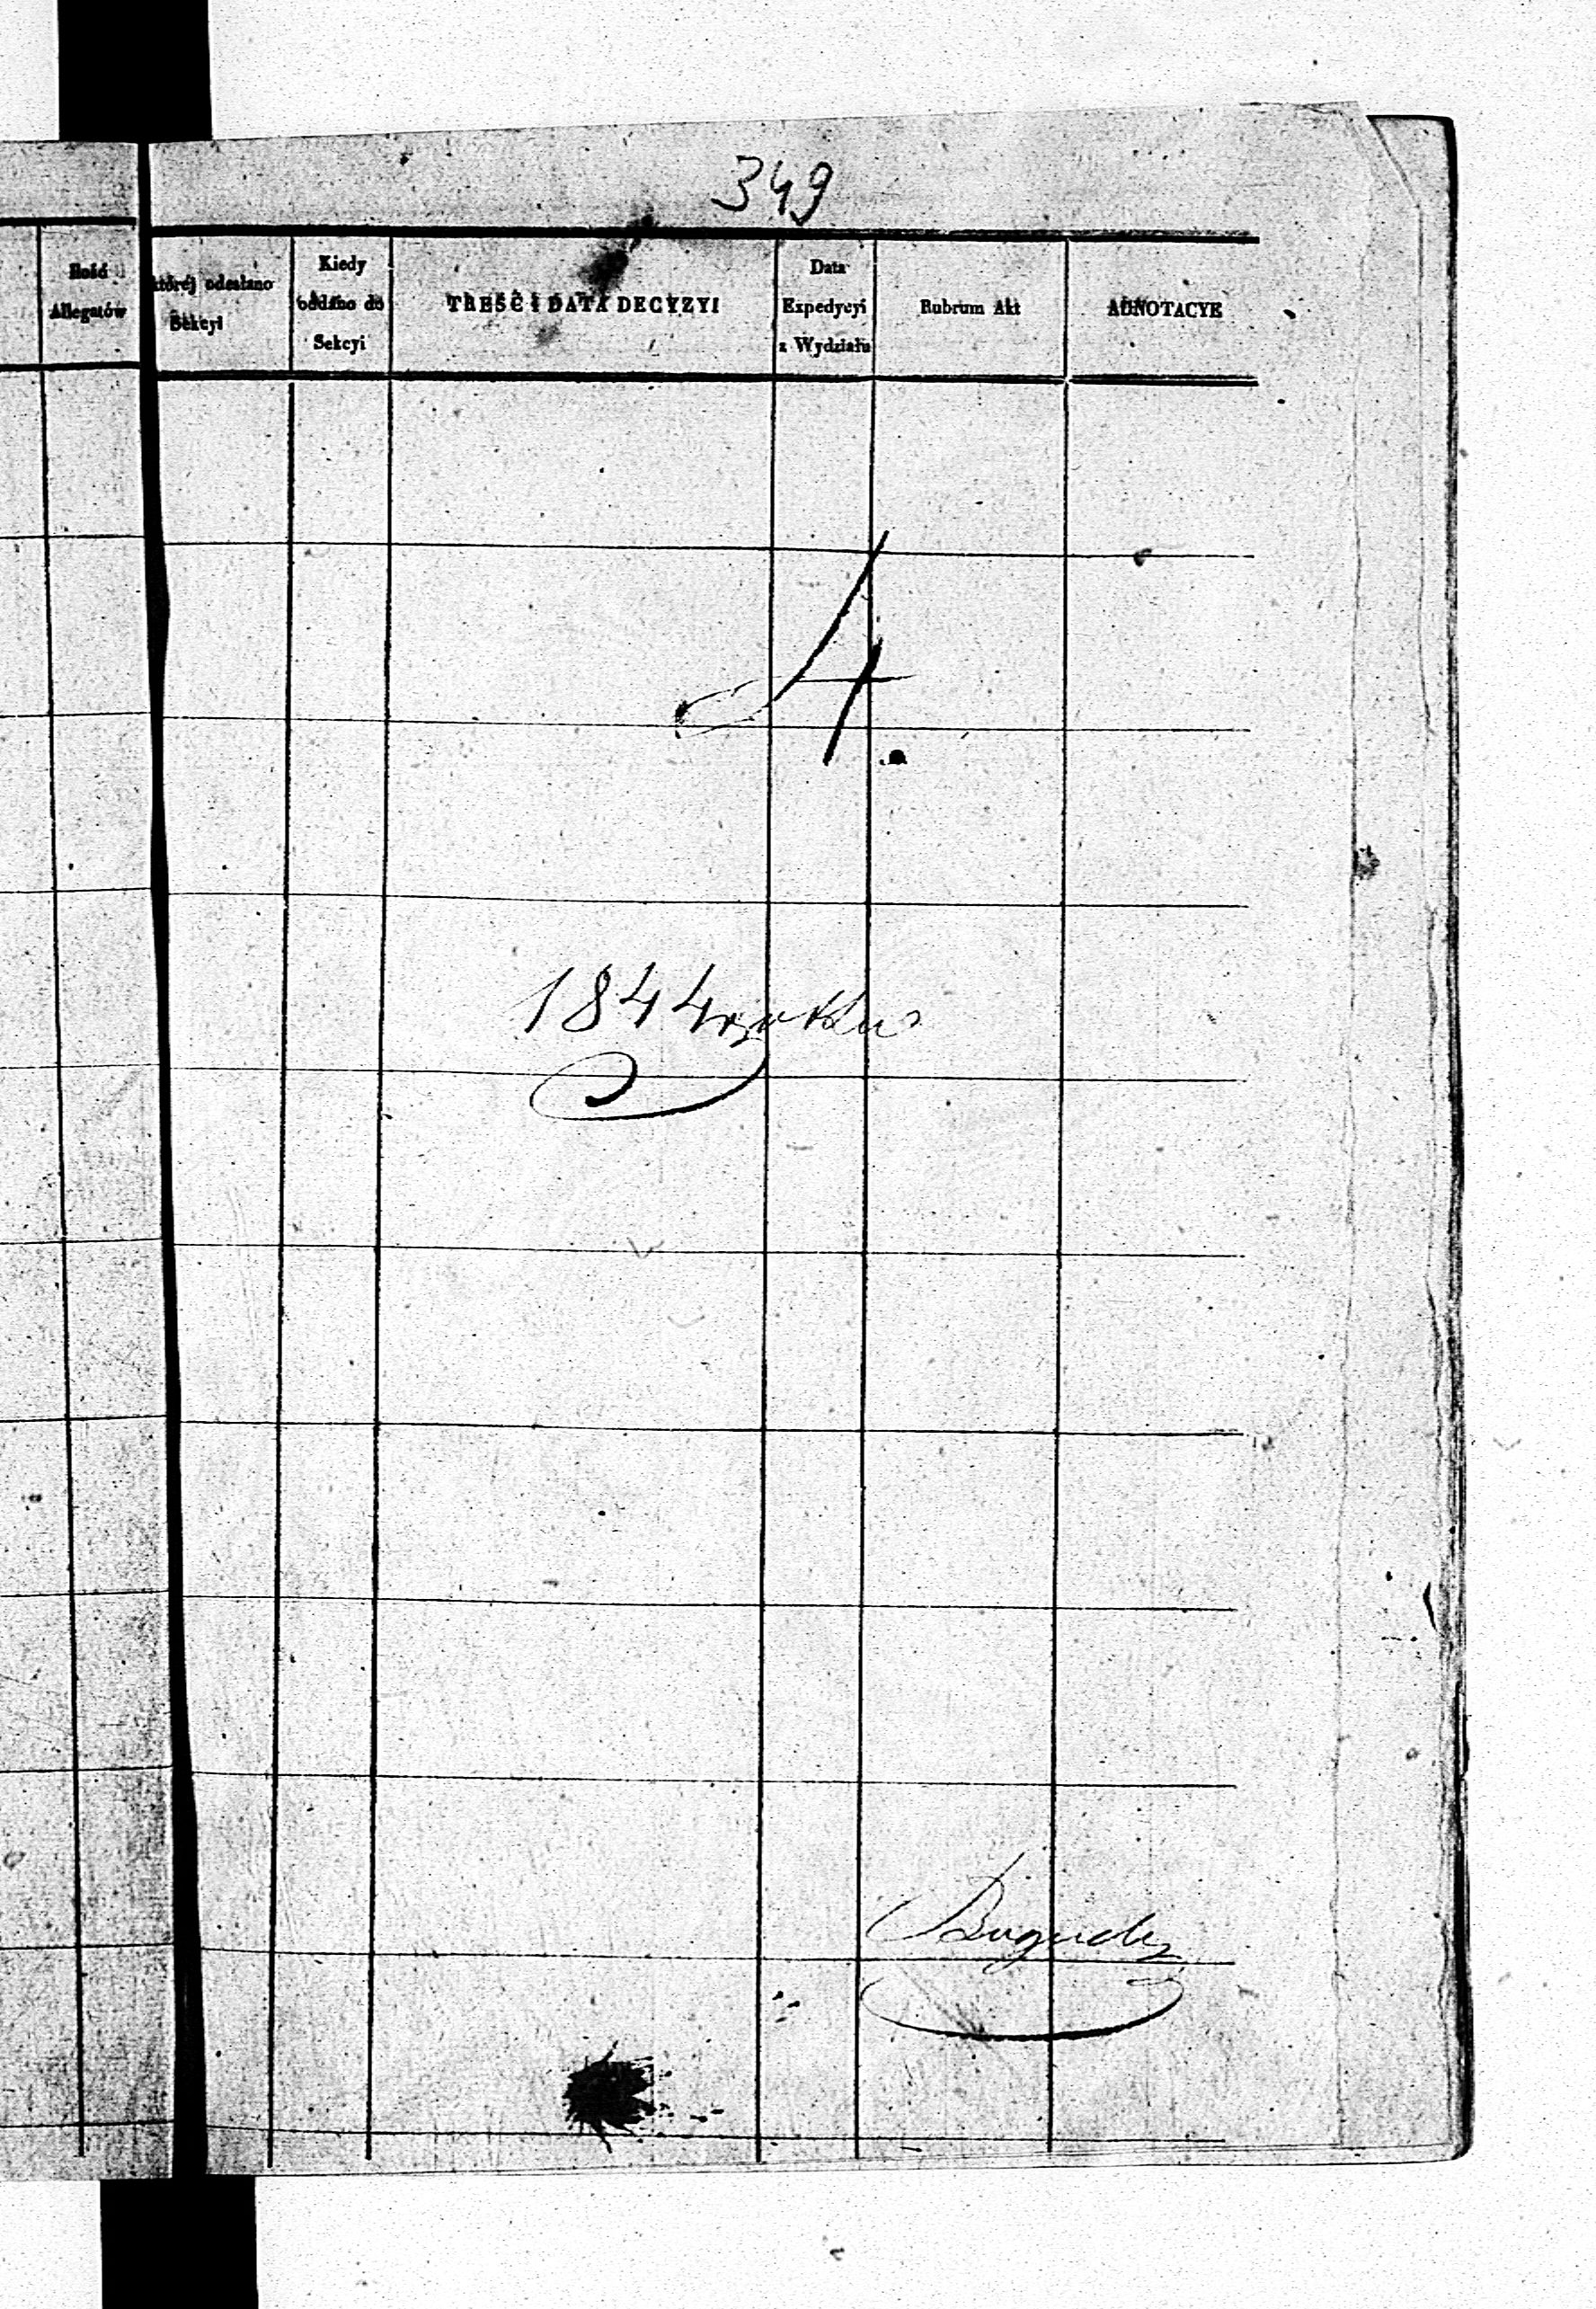 349
Ilość
Allegatów
któréj odesłano
Sekcyi
Kiedy
oddano do
Sekcyi
TREŚĆ I DATA DECYZYI
Data
Expedycyi
z Wydziału
Rubrum Akt
ADNOTACYE
4.
1844 roku